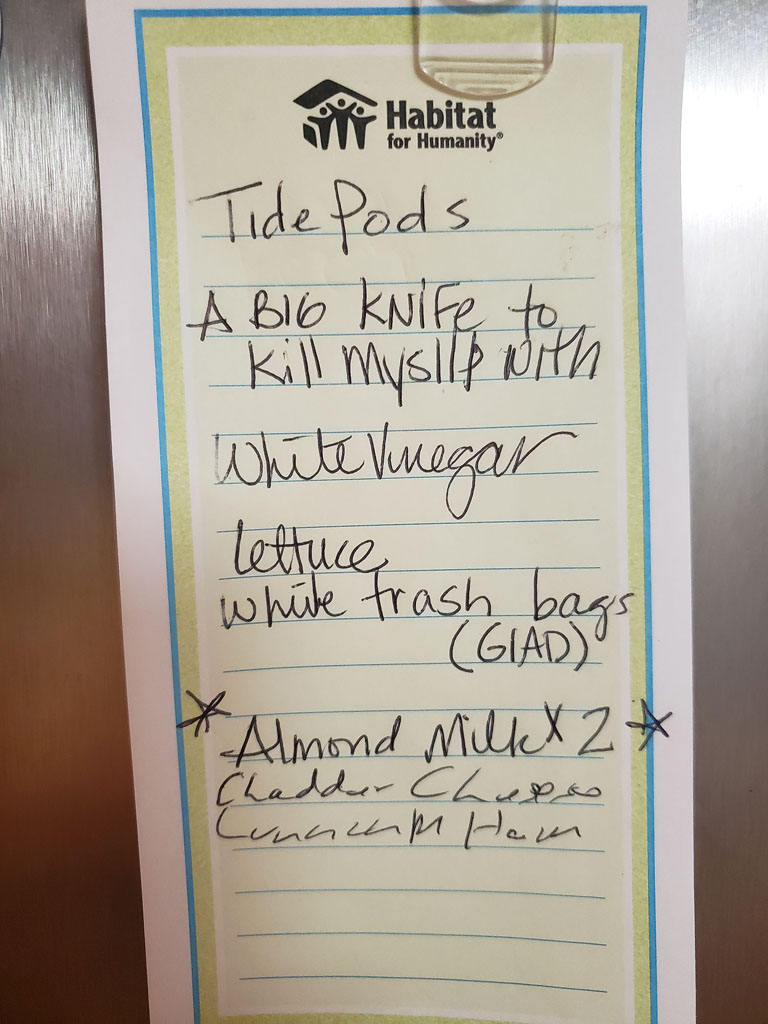 Habitat
for Humanity®
Tide Pods
A BIG KNIFE to
Kill Myself with
White Vinegar
lettuce
white trash bags
(GlAD)
* Almond Milk x 2 *
Chaddar Cheese
Ham